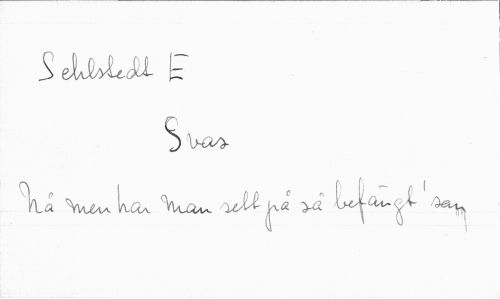 Sehlstedt E
Svar
Nå men har man sett på så befängt' sam